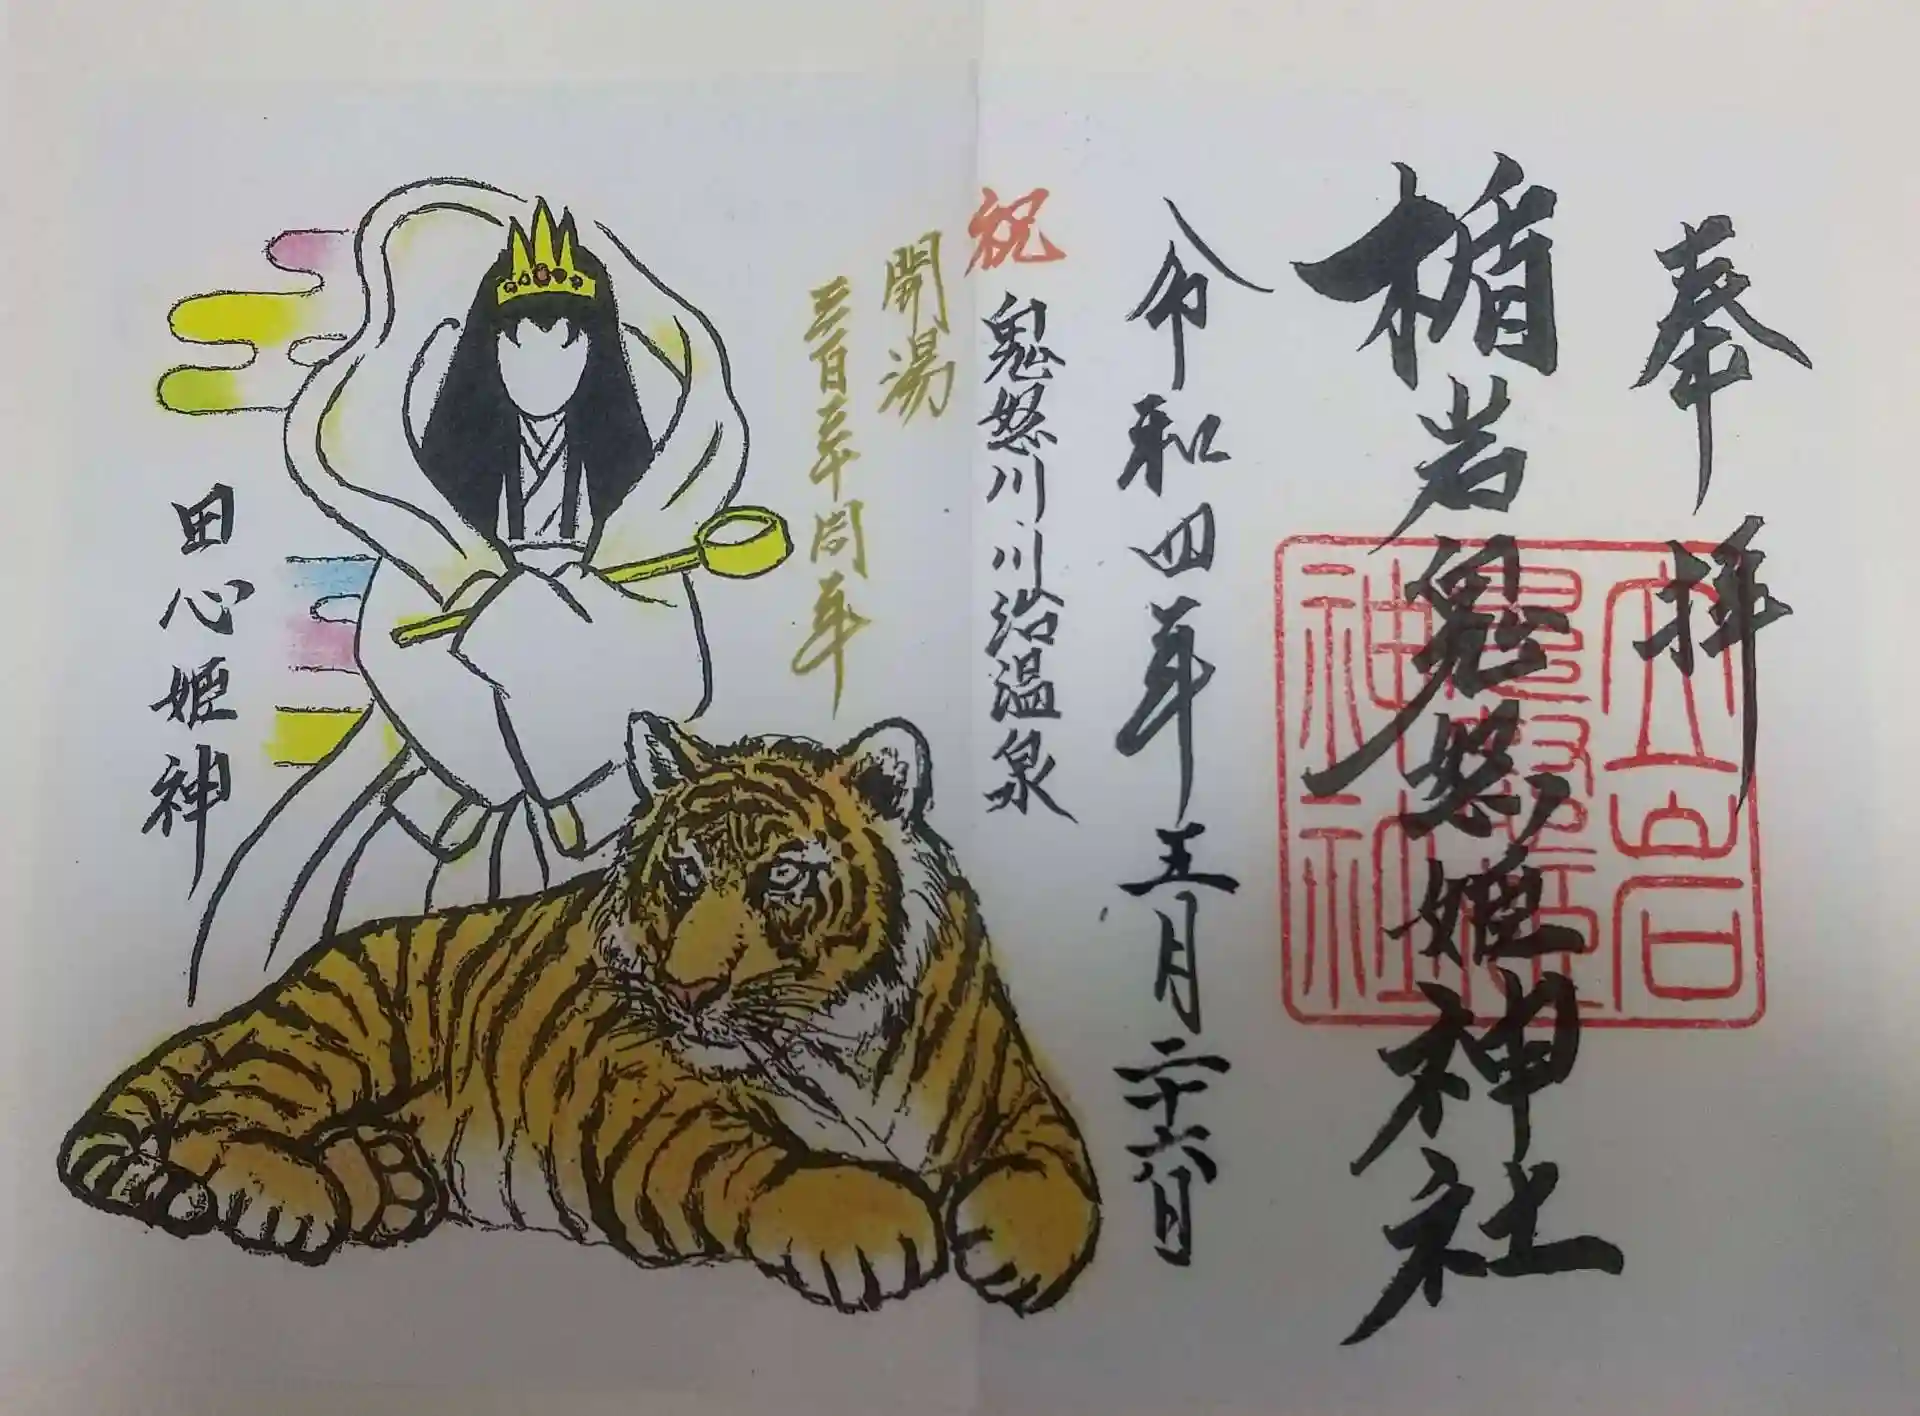 奉拝
楯岩鬼怒姫神社
立岩
鬼怒姫
神社
令和四年五月二十六日
祝 鬼怒川川治温泉
開湯
三百三十周年
田心姫神